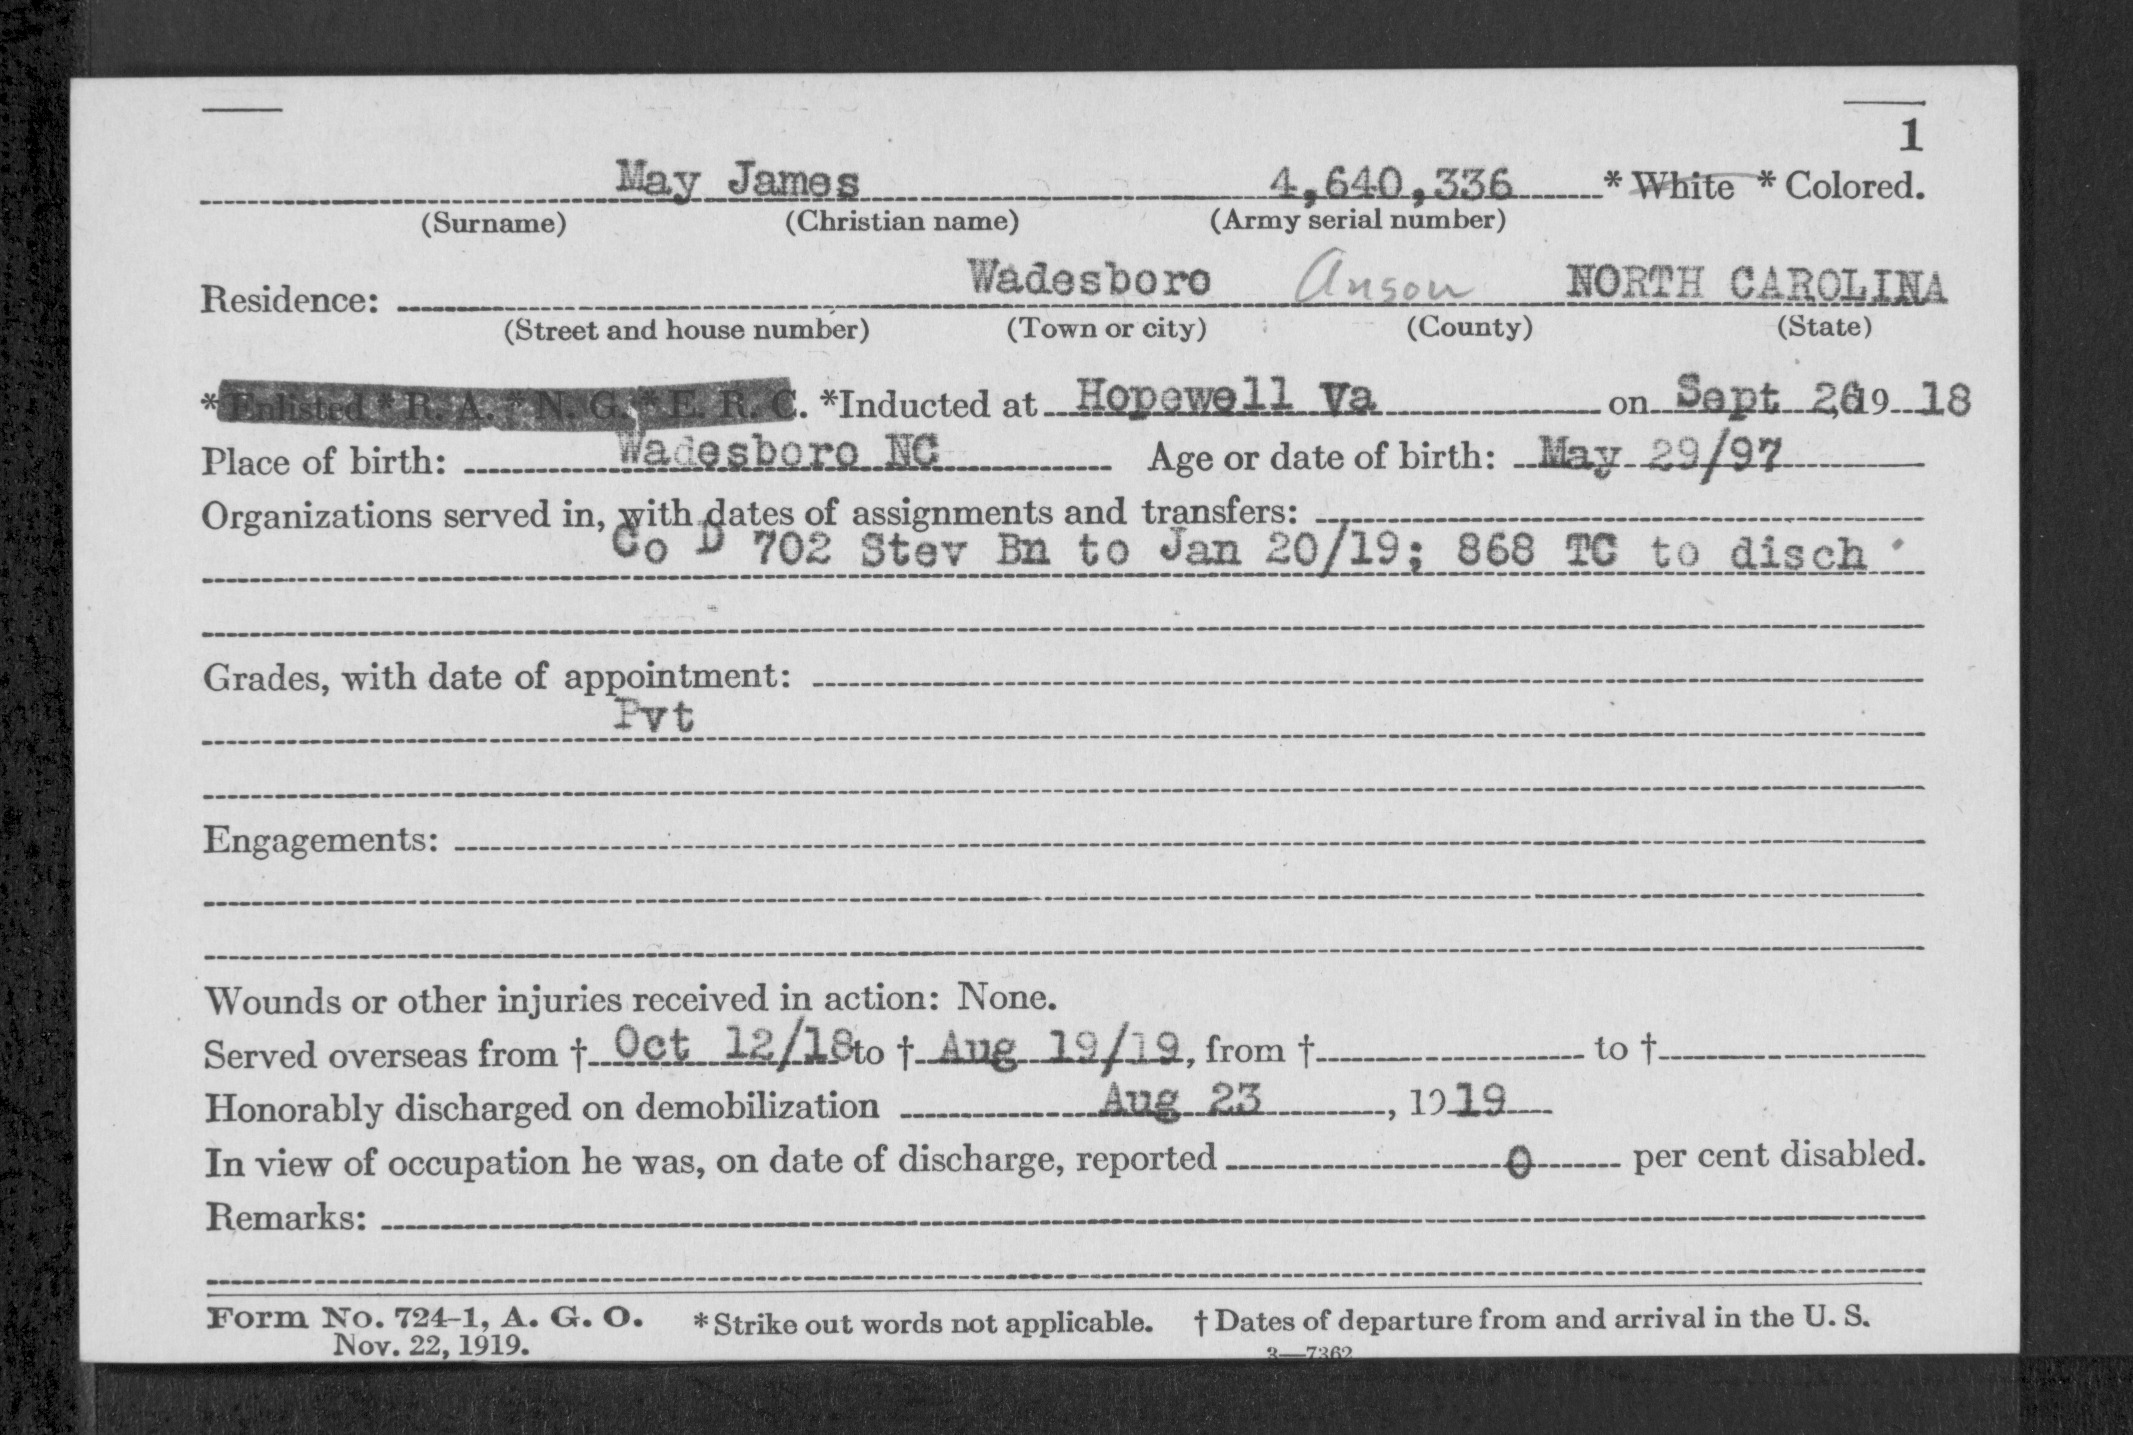 1
May James 4,640,336 * White * Colored.
(Surname) (Christian name) (Army serial number)
Residence: Wadesboro Anson NORTH CAROLINA
(Street and house number) (Town or city) (County) (State)
*Enlisted * R. A. * N. G. * E. R. C. *Inducted at Hopewell Va on Sept 26, 19 18
Place of birth: Wadesboro NC Age or date of birth: May 29/97
Organizations served in, with dates of assignments and transfers:
Co D 702 Stev Bn to Jan 20/19; 868 TC to disch
Grades, with date of appointment:
Pvt
Engagements:
Wounds or other injuries received in action: None.
Served overseas from † Oct 12/18 to † Aug 19/19, from † to †
Honorably discharged on demobilization Aug 23, 1919
In view of occupation he was, on date of discharge, reported 0 per cent disabled.
Remarks:
Form No. 724-1, A. G. O. * Strike out words not applicable. † Dates of departure from and arrival in the U. S.
Nov. 22, 1919. 3—7362